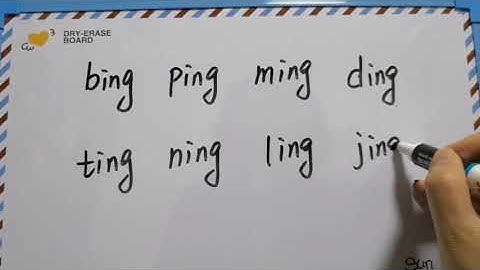 DRY-ERASE
BOARD
bing ping ming ding
ting ning ling jing